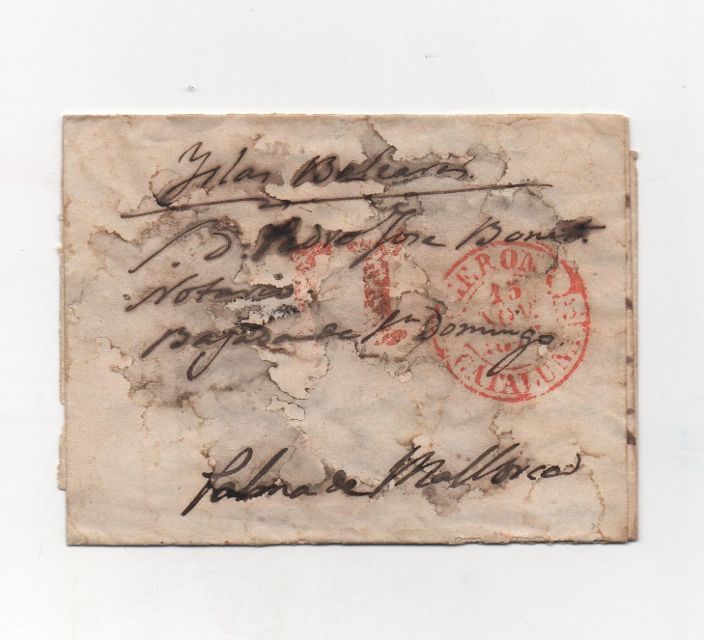 Yslas Baleares
S. D. Pedro Jose Bonet.
Notario
Bajada de Sn Domingo
Palma de Mallorca
GERONA
15
NOV
CATALUÑA